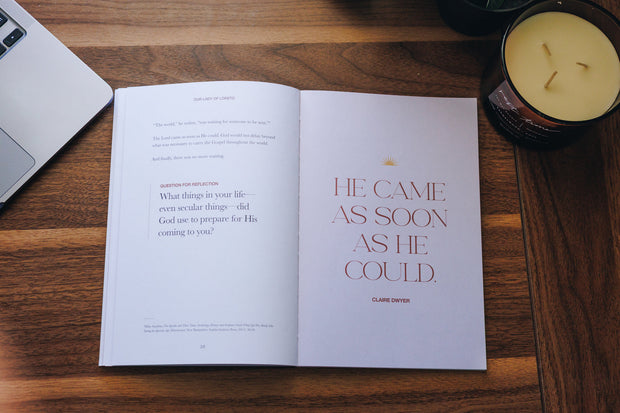 OUR LADY OF LORETO
"The world," he writes, "was waiting for someone to be sent."
The Lord came as soon as He could. God would not delay beyond
what was necessary to carry the Gospel throughout the world.
And finally, there was no more waiting.
QUESTION FOR REFLECTION
What things in your life—
even secular things—did
God use to prepare for His
coming to you?
HE CAME
AS SOON
AS HE
COULD.
CLAIRE DWYER